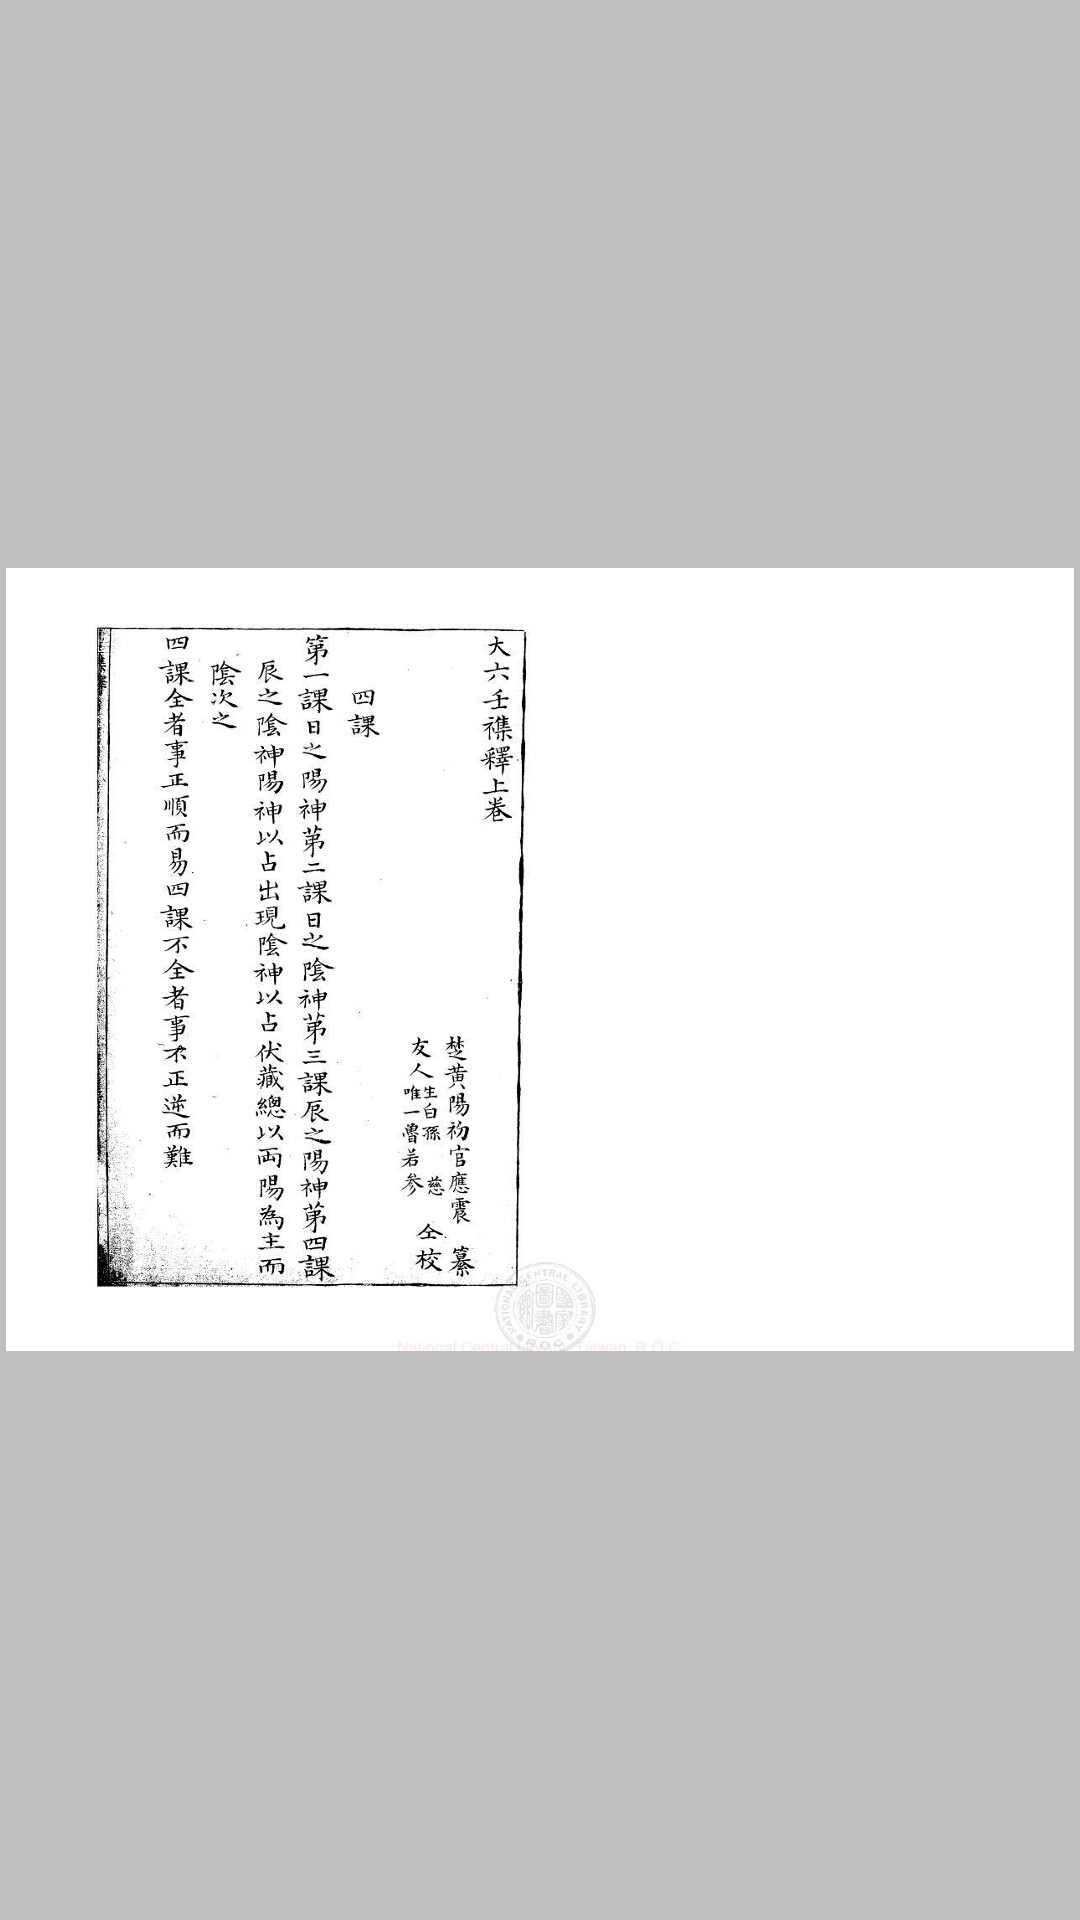 大六壬襍釋上卷
楚黄陽初官應震 纂
友人生白孫 慈 仝校
唯一曾若参
四課
第一課日之陽神第二課日之陰神第三課辰之陽神第四課
辰之陰神陽神以占出現陰神以占伏藏總以両陽為主而
陰次之
四課全者事正順而易四課不全者事不正逆而難
NATIONAL CENTRAL LIBRARY R.O.C
國家圖書館
National Central Library, Taiwan, R.O.C